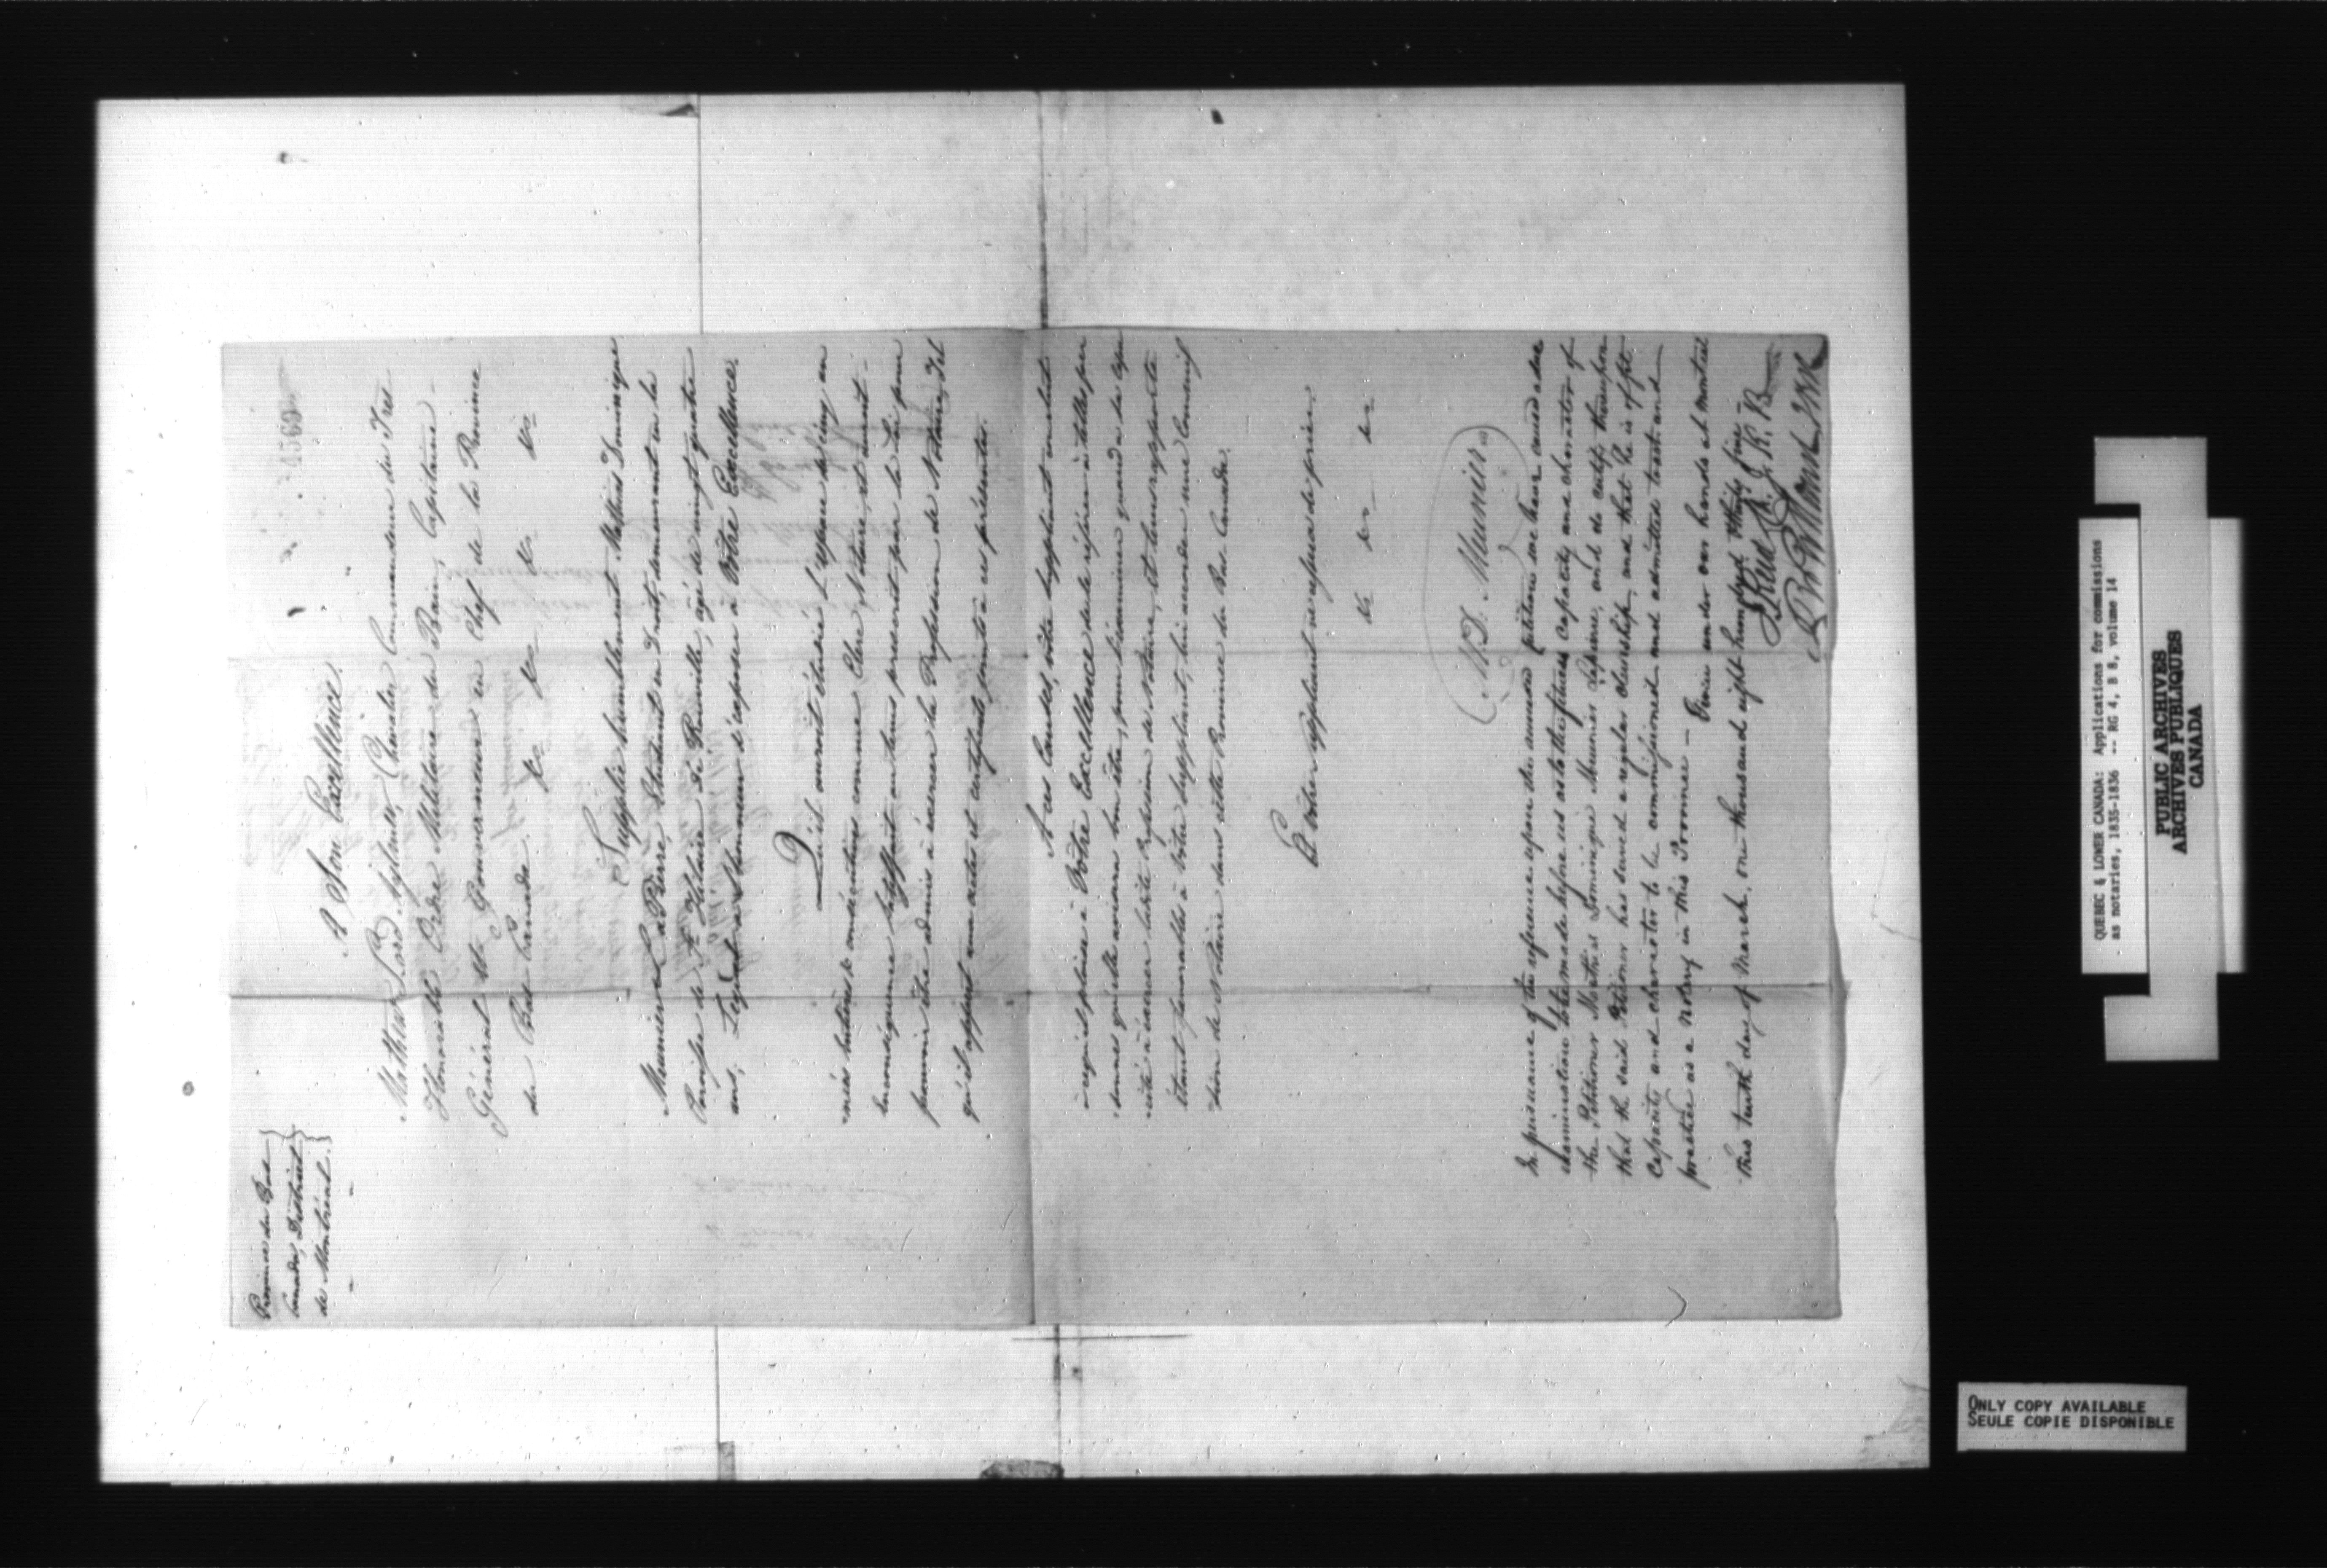 Province du Bas
Canada, District
de Montréal.
4569
A Son Excellence.
Mathew Lord Aylmer, Chevalier Commandeur du Très
Honorable Ordre Militaire du Bain, Capitaine
Général et Gouverneur en Chef de la Province
du Bas Canada &c &c &c &c
Supplie humblement Mathias Dominique
Meunier Lapierre Etudiant en Droit, demeurant en la
Paroisse de St Hilaire de Rouville, agé de vingt quatre
ans, Lequel a l'honneur d'exposer à Vôtre Excellence.
Qu'il auroit étudié l'espace de cinq an
-nées entières & consécutives comme Clerc Notaire, et auroit
en conséquence satisfait au tems prescrit par la Loi pour
pouvoir être admis à exercer la Profession de Notaire, Tel
qu'il appert aux actes et certificats joints à ces présentes.
A ces Causes, vôtre Suppliant conclut
à ce qu'il plaise à Vôtre Excellence de le référer à telles per
-sonnes qu'elle avisera bon être, pour l'examiner quand à sa capa
-cité à exercer la dite Profession de Notaire, et leurs rapports
étant favorables à Vôtre Suppliant, lui accorder une Commis
-sion de Notaire dans cette Province du Bas Canada.
Et vôtre Suppliant ne cessera de prier.
&c &c &c
M. D. Meunier
In pursuance of the reference upon the annexed petition we have caused a due
examination to be made before us as to the fitness capacity and character of
the Petitioner Mathias Dominique Meunier Lapierre, and do certify thereupon
that the said Petitioner has served a regular clerkship, and that he is of fit
capacity and character to be commissioned and admitted to act and
practise as a Notary in this Province — Given under our hands at Montreal
this tenth day of March, one thousand eight hundred & thirty five —
J. Reid Ch. J. K. B
QUEBEC & LOWER CANADA: Applications for commissions
as notaries, 1835-1836 -- RG 4, B 8, volume 14
PUBLIC ARCHIVES
ARCHIVES PUBLIQUES
CANADA
ONLY COPY AVAILABLE
SEULE COPIE DISPONIBLE